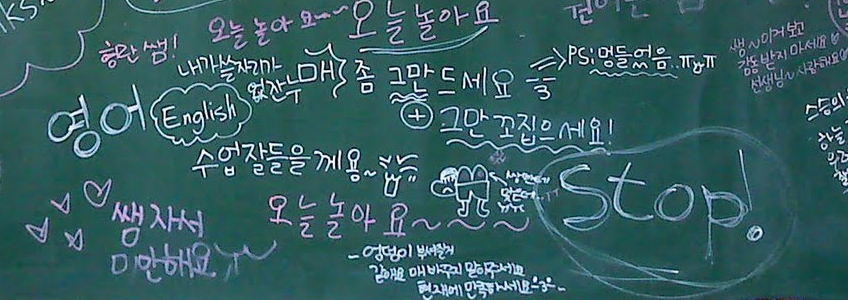 오늘 놀아 요~~
오늘놀아요
쌤~이거 보고
감동 받지 마세요♡
선생님~사랑해요♡
쌤!
내가 쓸 자리가
없잖수
매 좀 그만 드세요
=> PS: 멍들었음. ㅠㅠ
영어
English
+ 그만 꼬집으세요!
스승의
하늘
수업 잘 들을게용~
Stop!
오늘 놀아 요~~~~
쌤 자서
미안해요 ㅜㅜ
- 엉덩이 부서질거
같애요 매 바꾸지 말아주세요
현재에 만족하세요 -